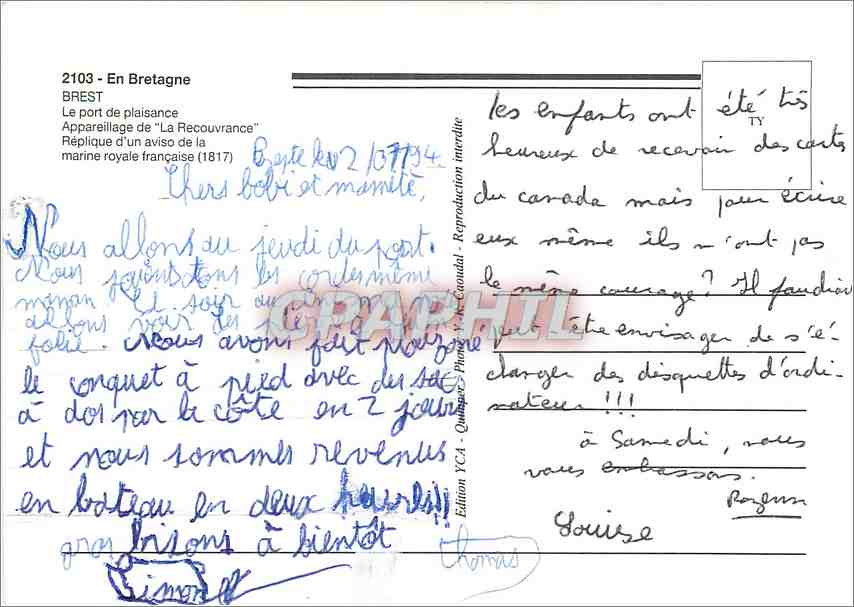 2103 - En Bretagne
BREST
Le port de plaisance
Appareillage de "La Recouvrance"
Réplique d'un aviso de la
marine royale française (1817)
2/07/94
Chers bobi et mamité,
Nous allons au jeudi du port.
Nous les cordes même
maman le soir
allons voir des
folie. Nous avons fait
le conquet à pied avec des sacs
à dos par la côte en 2 jours
et nous sommes revenus
en bateau en deux heures!!
gros bisons à bientôt
Simon
Edition YCA - Quimper - Photo Y.-R. Caoudal - Reproduction interdite
TY
les enfants ont été très
heureux de recevoir des cartes
du canada mais pour écrire
eux même ils n'ont pas
le même courage? Il faudrait
peut-être envisager de s'é-
changer des disquettes d'ordi-
nateur!!!
à Samedi, nous
vous embrassons.
Rozenn
Louise
thomas
GRAPHIL